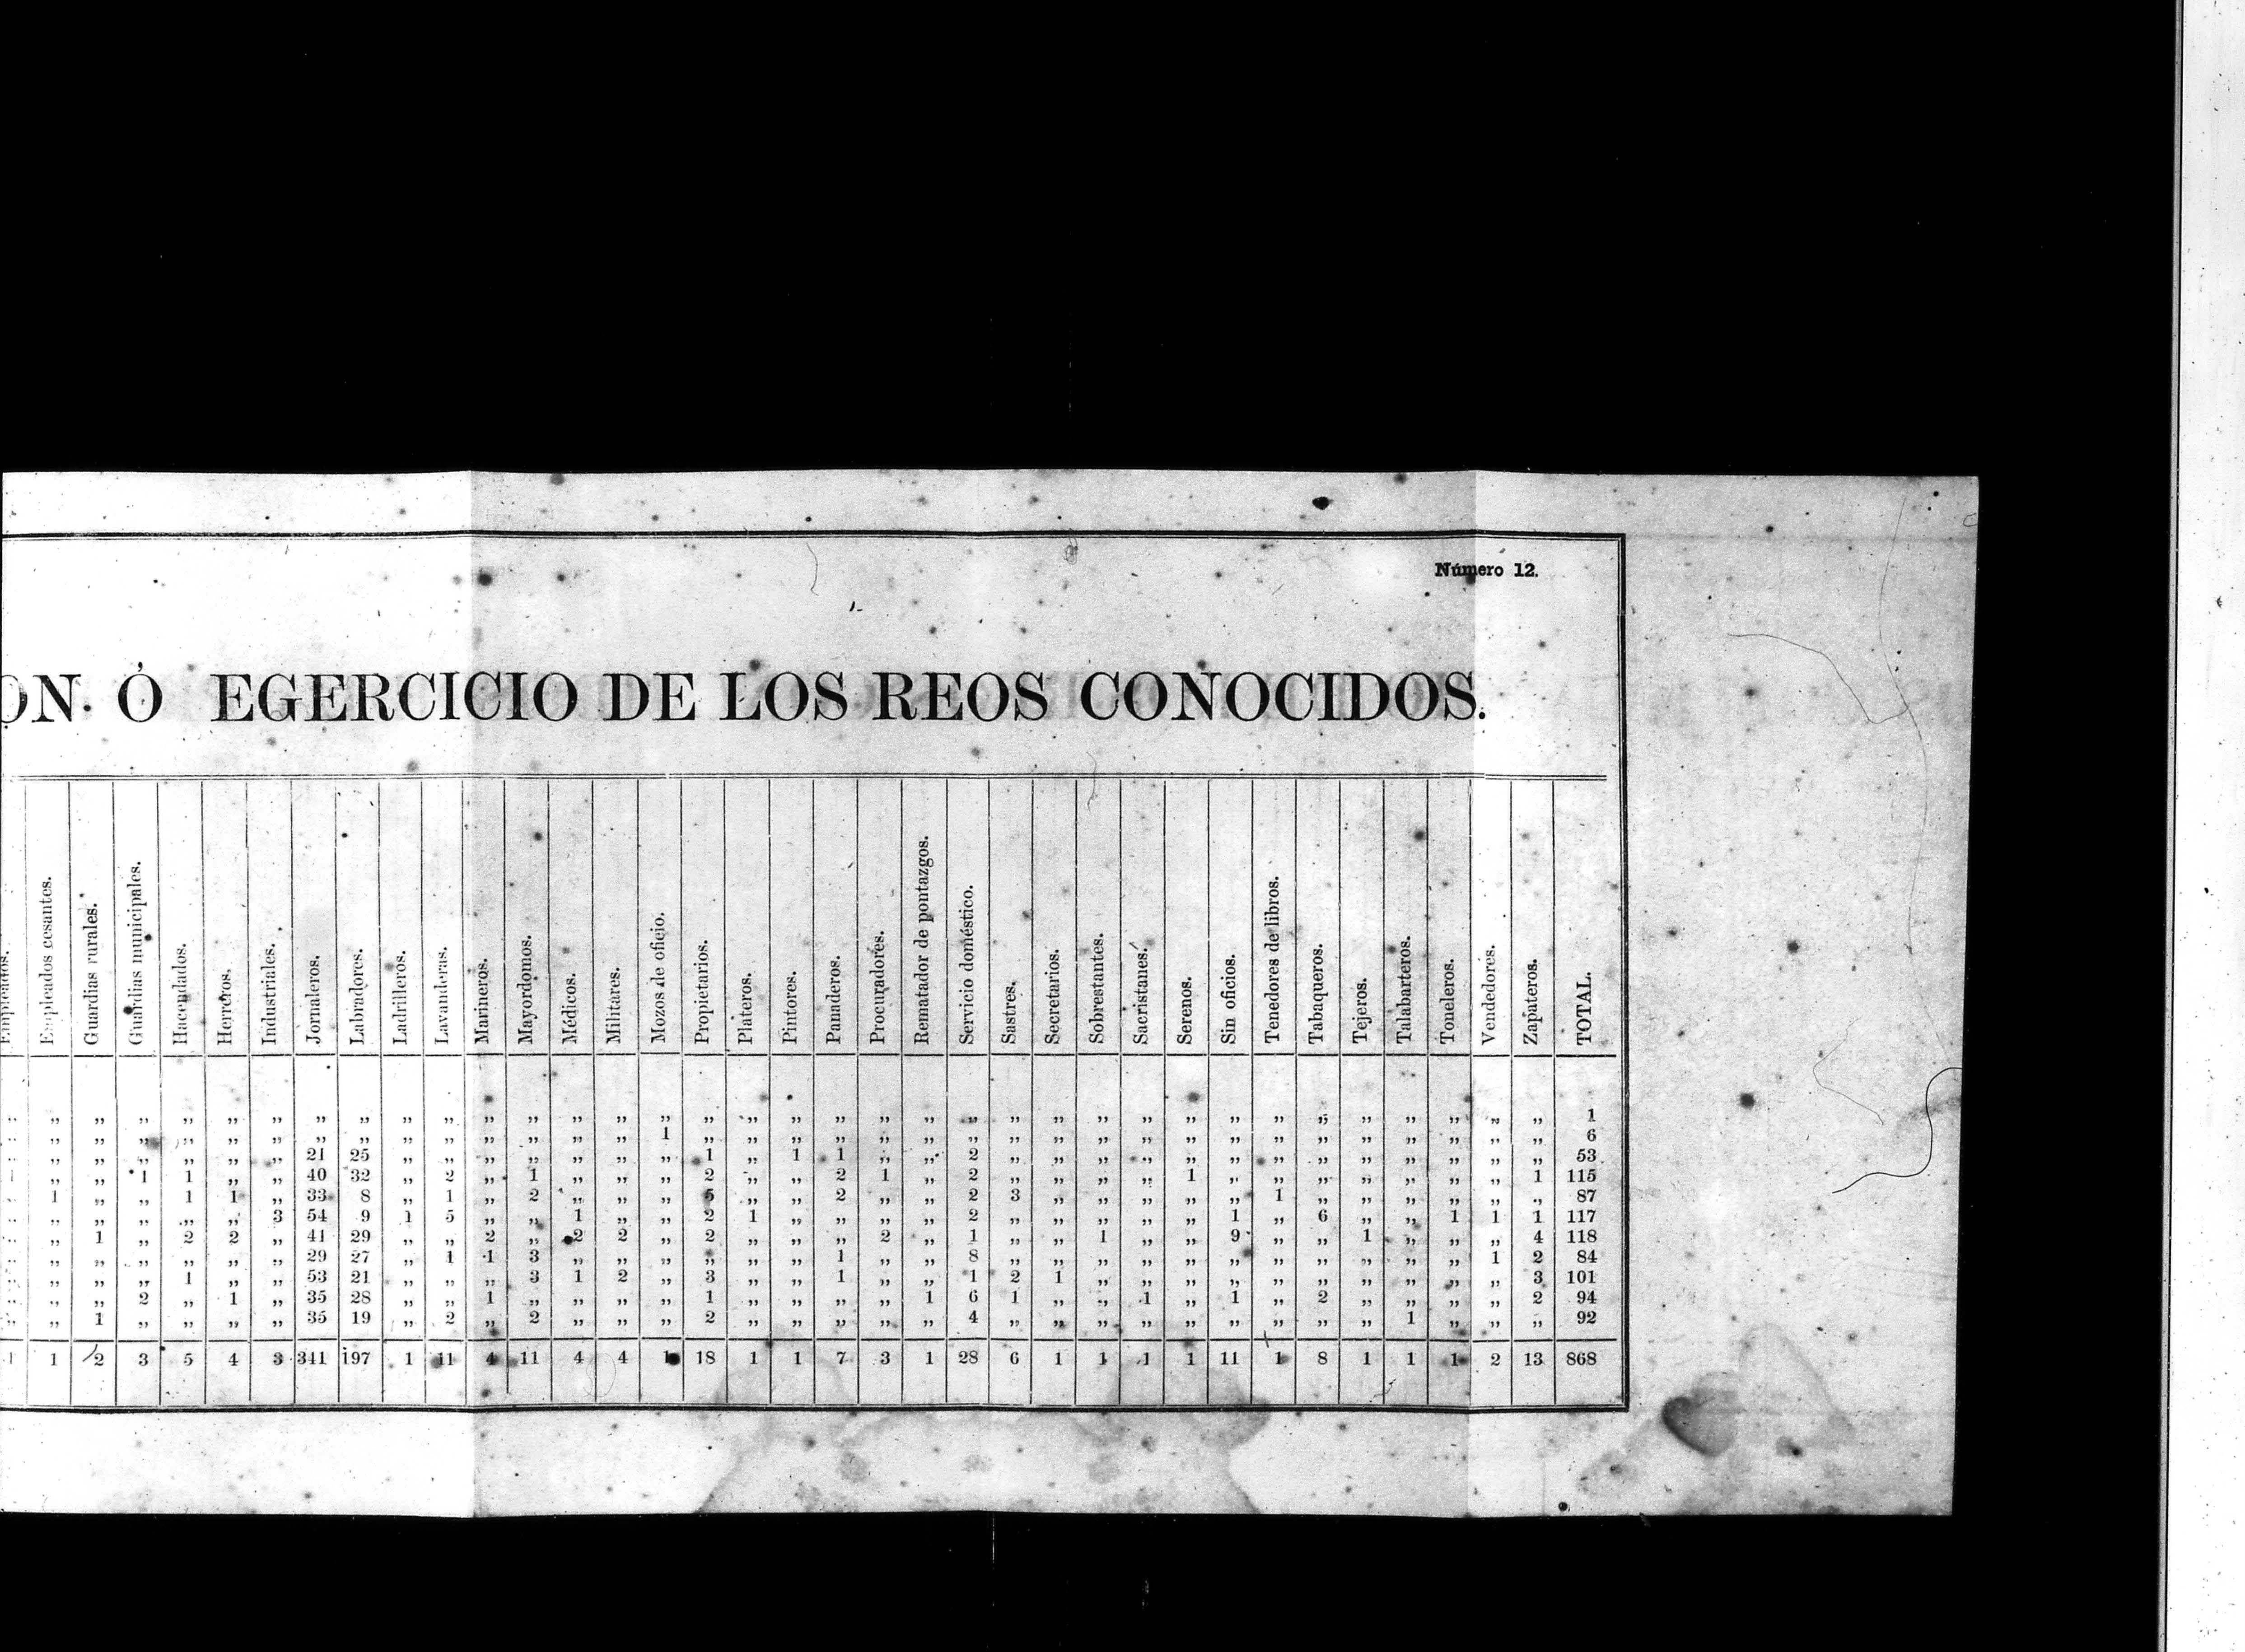 Número 12.
ON Ó EGERCICIO DE LOS REOS CONOCIDOS.
Empleados.
Empleados cesantes.
Guardias rurales.
Guardias municipales.
Hacendados.
Herreros.
Industriales.
Jornaleros.
Labradores.
Ladrilleros.
Lavanderas.
Marineros.
Mayordomos.
Médicos.
Militares.
Mozos de oficio.
Propietarios.
Plateros.
Pintores.
Panaderos.
Procuradores.
Rematador de pontazgos.
Servicio doméstico.
Sastres.
Secretarios.
Sobrestantes.
Sacristanes.
Serenos.
Sin oficios.
Tenedores de libros.
Tabaqueros.
Tejeros.
Talabarteros.
Toneleros.
Vendedores.
Zapateros.
TOTAL.
„ „ „ „ „ „ „ „ „ „ „ „ „ „ „ „ „ „ „ „ „ „ „ „ „ „ „ „ „ „ „ „ „ „ „ 1
„ „ „ „ „ „ „ „ „ „ „ „ „ „ 1 „ „ „ „ „ „ „ „ „ „ „ „ „ „ „ „ „ „ „ „ 6
„ „ „ „ „ „ 21 25 „ „ „ „ „ „ „ 1 „ 1 1 „ „ 2 „ „ „ „ „ „ „ „ „ „ „ „ „ 53
„ „ 1 1 „ „ 40 32 „ 2 „ 1 „ „ „ 2 „ „ 2 1 „ 2 „ „ „ „ 1 „ „ „ „ „ „ „ 1 115
1 „ „ 1 1 „ 33 8 „ 1 „ 2 „ „ „ 5 „ „ 2 „ „ 2 3 „ „ „ „ „ 1 „ „ „ „ „ „ 87
„ „ „ „ „ 3 54 9 1 5 „ „ 1 „ „ 2 1 „ „ „ „ 2 „ „ „ „ „ 1 „ 6 „ „ 1 1 1 117
„ 1 „ 2 2 „ 41 29 „ „ 2 „ 2 2 „ 2 „ „ „ 2 „ 1 „ „ 1 „ „ 9 „ „ 1 „ „ „ 4 118
„ „ „ „ „ „ 29 27 „ 1 1 3 „ „ „ „ „ „ 1 „ „ 8 „ „ „ „ „ „ „ „ „ „ „ 1 2 84
„ „ „ 1 „ „ 53 21 „ „ „ 3 1 2 „ 3 „ „ 1 „ „ 1 2 1 „ „ „ „ „ „ „ „ „ „ 3 101
„ „ 2 „ 1 „ 35 28 „ „ 1 „ „ „ „ 1 „ „ „ „ 1 6 1 „ „ 1 „ 1 „ 2 „ „ „ „ 2 94
„ 1 „ „ „ „ 35 19 „ 2 „ 2 „ „ „ 2 „ „ „ „ „ 4 „ „ „ „ „ „ „ „ „ 1 „ „ „ 92
1 2 3 5 4 3 341 197 1 11 4 11 4 4 1 18 1 1 7 3 1 28 6 1 1 1 1 11 1 8 1 1 1 2 13 868